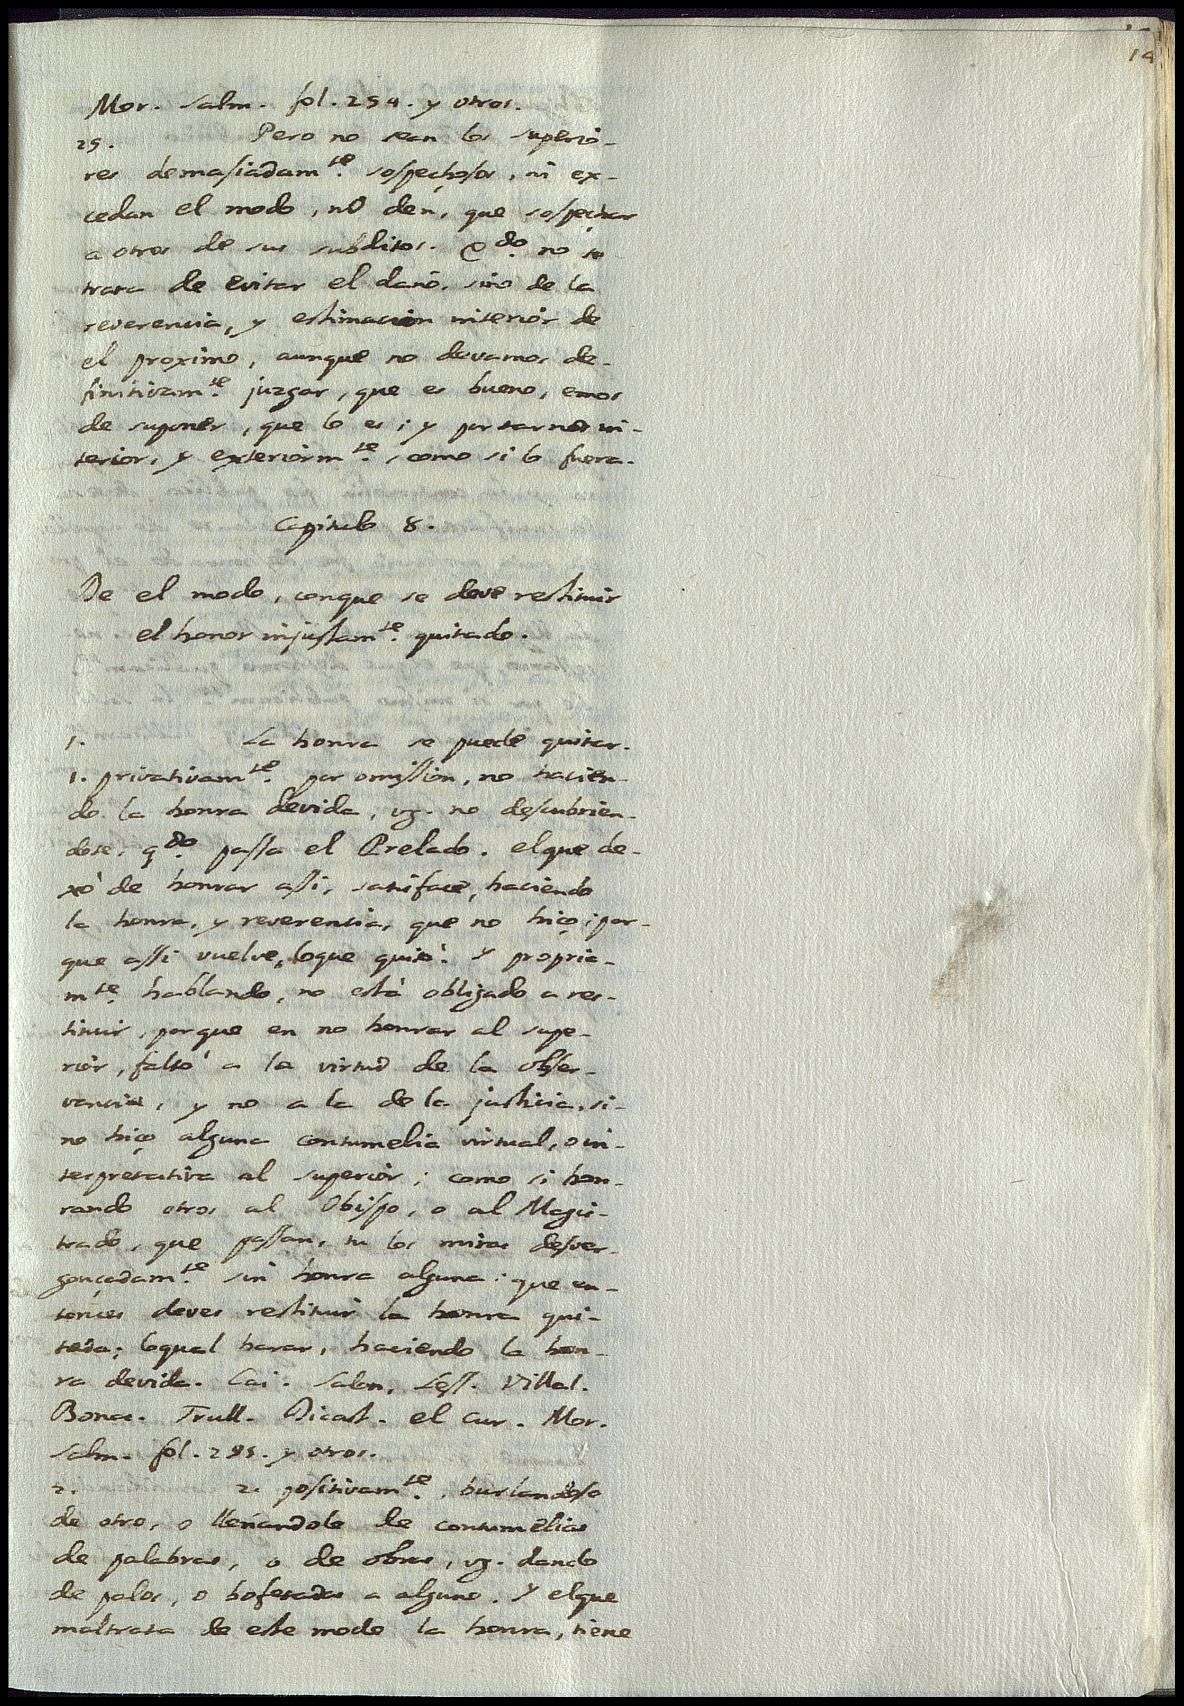 14
Mor. Salm. fol. 254. y otros.
25. Pero no sean los superio-
res demasiadam.te sospechosos, ni ex-
cedan el modo, no den, que sospechar
a otros de sus subditos. Q.do no se
trata de evitar el dano, sino de la
reverencia, y estimacion interior de
el proximo, aunque no devamos de-
finitivam.te juzgar, que es bueno, emos
de suponer, que lo es; y portarnos in-
terior, y exteriorm.te, como si lo fuera.
Capitulo 8.
De el modo, conque se deve restituir
el honor injustam.te quitado.
1. La honra se puede quitar.
1. privativam.te por omission, no hacien-
do la honra devida, vg. no descubrien-
dose, q.do passa el Prelado. elque de-
xò de honrar assi, satisface, haciendo
la honra, y reverencia, que no hiço; por-
que assi vuelve, loque quitò. Y propria-
m.te hablando, no està obligado a res-
tituir, porque en no honrar al supe-
rior, faltò a la virtud de la obser-
vancia, y no a la de la justicia, si-
no hiço alguna contumelia virtual, o in-
terpretativa al superior; como si hon-
rando otros al Obispo, o al Magis-
trado, que passan, tu los miras desver-
gonçadam.te sin honra alguna: que en-
tonces deves restituir la honra qui-
tada; loqual haras, haciendo la hon-
ra devida. Cai. Salon, Less. Villal.
Bonac. Trull. Dicast. el Cur. Mor.
Salm. fol. 295. y otros.
2. 2. positivam.te, burlandose
de otro, o llenandole de contumelias
de palabras, o de obras, vg. dando
de palos, o bofetadas a alguno. Y elque
maltrata de este modo la honra, tiene